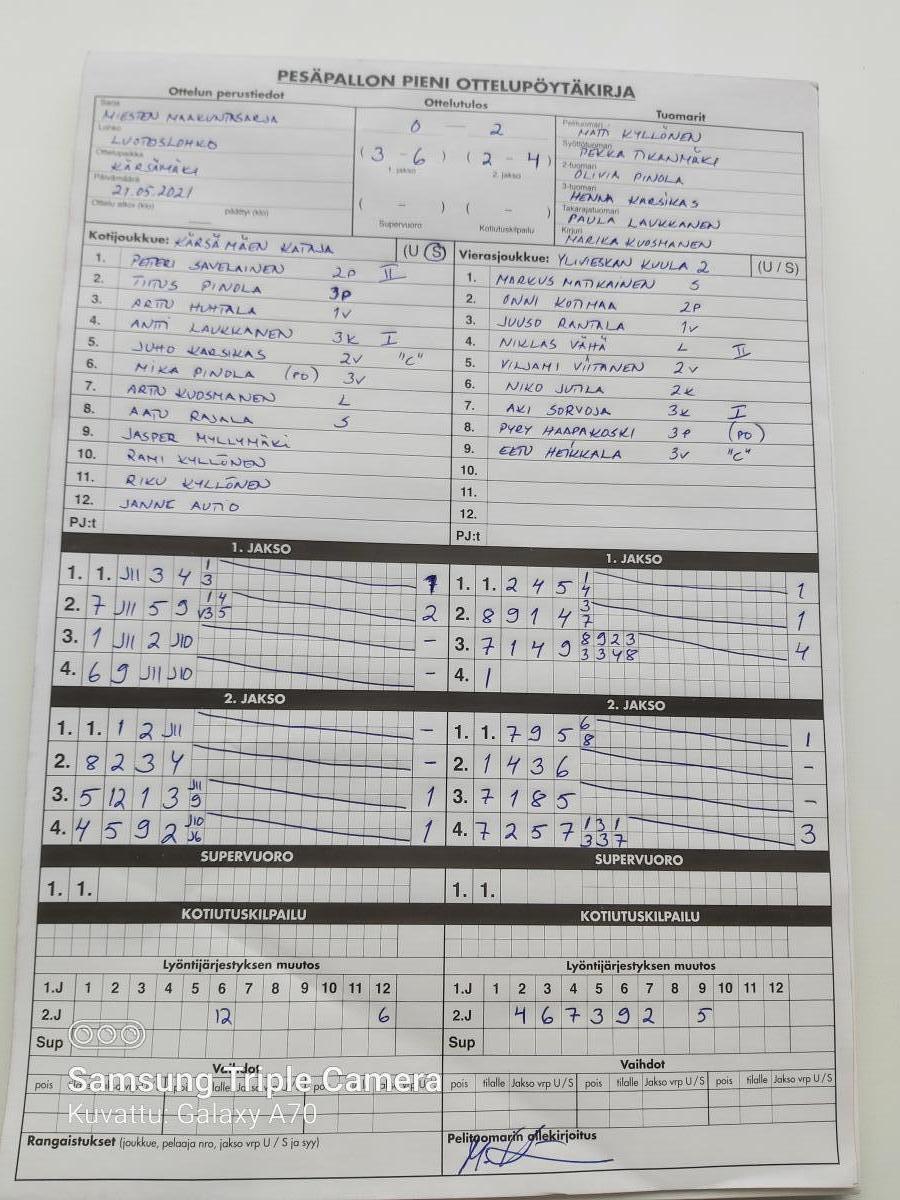 PESÄPALLON PIENI OTTELUPÖYTÄKIRJA
Ottelun perustiedot
Sarja
MIESTEN MAAKUNTASARJA
Lohko
LUOTOSLOHKO
Ottelupaikka
KÄRSÄMÄKI
Päivämäärä
21.05.2021
Ottelu alkoi (klo) päättyi (klo)
Ottelutulos
0 — 2
(3 - 6) (2 - 4)
1. jakso 2. jakso
( - ) ( - )
Supervuoro Kotiutuskilpailu
Tuomarit
Pelituomari
MATTI KYLLÖNEN
Syöttötuomari
PEKKA TIKANMÄKI
2-tuoman
OLIVIA PINOLA
3-tuoman
HENNA KARSIKAS
Takarajatuoman
PAULA LAUKKANEN
Kirjuri
MARIKA KUOSMANEN
Kotijoukkue: KÄRSÄMÄEN KATAJA (U S)
1. PETERI SAVELAINEN 2P II
2. TIITUS PINOLA 3P
3. ARTTU HUHTALA 1V
4. ANTTI LAUKKANEN 3K I
5. JUHO KARSIKAS 2V "C"
6. MIKA PINOLA (PO) 3V
7. ARTTU KUOSMANEN L
8. AATU RAJALA S
9. JASPER MYLLYMÄKI
10. RAMI KYLLÖNEN
11. RIKU KYLLÖNEN
12. JANNE AUTIO
PJ:t
Vierasjoukkue: YLIVIESKAN KUULA 2 (U / S)
1. MARKUS MATIKAINEN S
2. ONNI KOTIMAA 2P
3. JUUSO RANTALA 1V
4. NIKLAS VÄHÄ L II
5. VILJAMI VIITANEN 2V
6. NIKO JUTILA 2K
7. AKI SORVOJA 3K I
8. PYRY HAAPAKOSKI 3P (PO)
9. EETU HEIKKALA 3V "C"
10.
11.
12.
PJ:t
1. JAKSO
1. 1. J11 3 4 1 3 1
2. 7 J11 5 9 1 4 V3 5 2
3. 1 J11 2 J10 -
4. 6 9 J11 J10 -
1. JAKSO
1. 1. 2 4 5 1 4 1
2. 8 9 1 4 3 7 1
3. 7 1 4 9 8 9 2 3 3 3 4 8 4
4. 1
2. JAKSO
1. 1. 1 2 J11 -
2. 8 2 3 4 -
3. 5 12 1 3 J11 9 1
4. 4 5 9 2 J10 J6 1
2. JAKSO
1. 1. 7 9 5 6 8 1
2. 1 4 3 6 -
3. 7 1 8 5 -
4. 7 2 5 7 1 3 1 3 3 7 3
SUPERVUORO
1. 1.
SUPERVUORO
1. 1.
KOTIUTUSKILPAILU
KOTIUTUSKILPAILU
Lyöntijärjestyksen muutos
1.J 1 2 3 4 5 6 7 8 9 10 11 12
2.J 12 6
Sup
Lyöntijärjestyksen muutos
1.J 1 2 3 4 5 6 7 8 9 10 11 12
2.J 4 6 7 3 9 2 5
Sup
Vaihdot
pois
Vaihdot
pois tilalle Jakso vrp U / S pois tilalle Jakso vrp U / S pois tilalle Jakso vrp U / S
Samsung Triple Camera
Kuvattu: Galaxy A70
Rangaistukset (joukkue, pelaaja nro, jakso vrp U / S ja syy)
Pelituomarin allekirjoitus